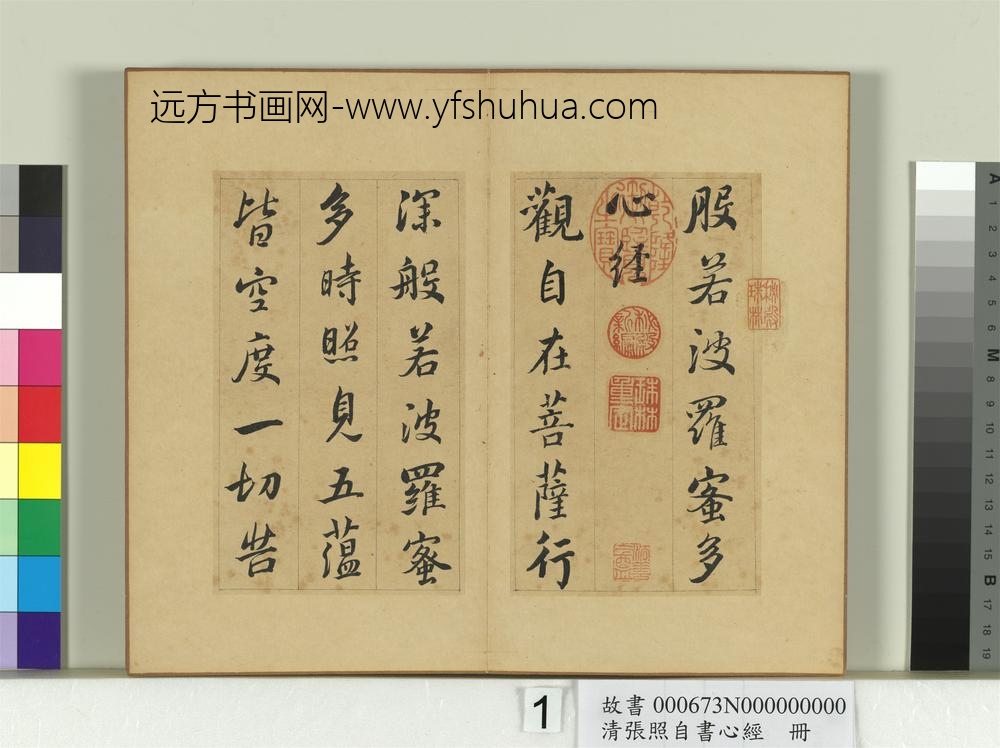 远方书画网-www.yfshuhua.com
秘殿珠林
般若波羅蜜多
心經
乾隆御覽之寶
秘殿新編
珠林重定
觀自在菩薩行
深般若波羅蜜
多時照見五蘊
皆空度一切苦
A 1 2 3 4 5 6 M 8 9 10 11 12 13 14 15 B 17 18 19
1
故書 000673N000000000
清張照自書心經 冊